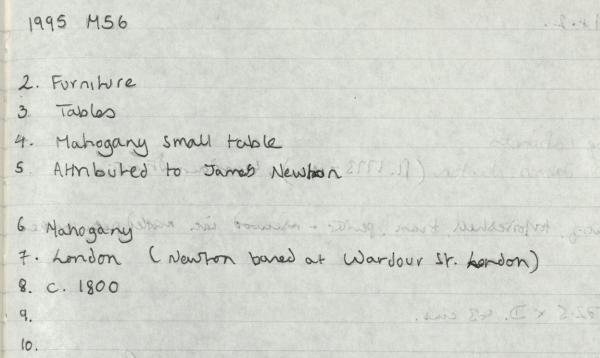 1995 M56
2. Furniture
3. Tables
4. Mahogany small table
5. Attributed to James Newton
6. Mahogany
7. London (Newton based at Wardour St. London)
8. c. 1800
9.
10.